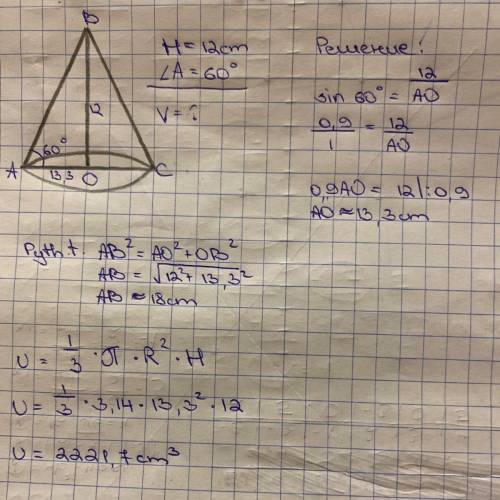 B
H = 12cm
∠A = 60°
V = ?
12
60°
A
13,3
O
C
Решение:
sin 60° = 12/AO
0,9/1 = 12/AO
0,9AO = 12 |:0,9
AO ≈ 13,3cm
Pyth t. AB² = AO² + OB²
AB = √12² + 13,3²
AB ≈ 18cm
V = 1/3 · П · R² · H
V = 1/3 · 3,14 · 13,3² · 12
V = 2221,7 cm³